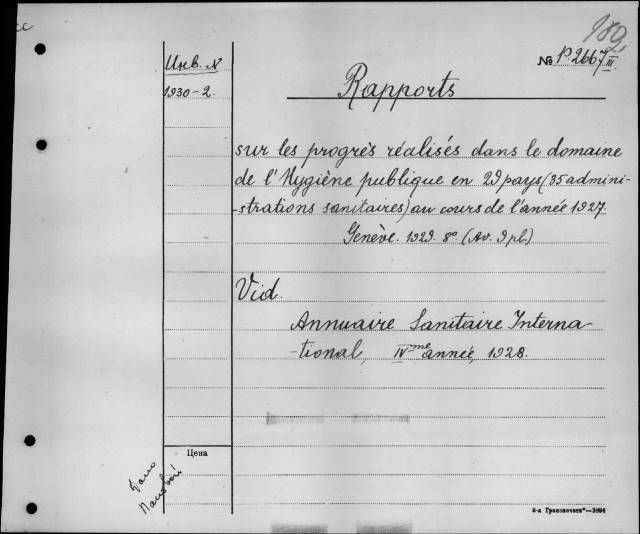 cc
182
№ P.2667 III
Инв. N
1930-2.
Rapports
sur les progrès réalisés dans le domaine
de l'Hygiène publique en 29 pays (35 admini-
-strations sanitaires) au cours de l'année 1927.
Genève. 1929. 8º (Av. 9 pl.)
Vid.
Annuaire Sanitaire Interna-
-tional, IVme année, 1928.
Цена